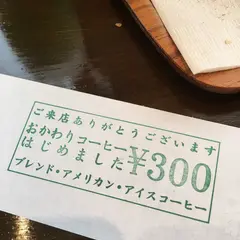 ご来店ありがとうございます
おかわりコーヒー
はじめました ¥300
ブレンド・アメリカン・アイスコーヒー